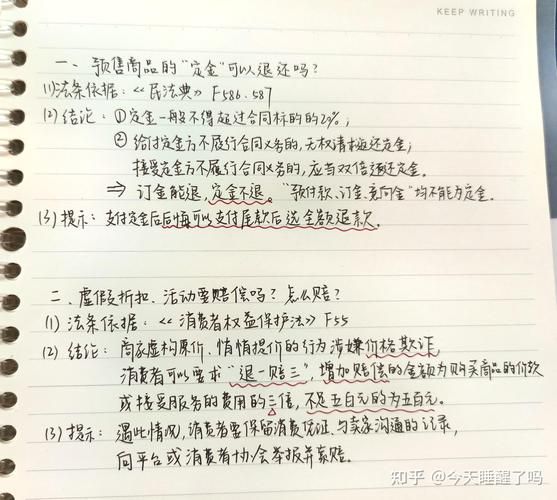 KEEP WRITING
一、预售商品的“定金”可以退还吗？
(1)法条依据：《民法典》F586.587
(2)结论：①定金一般不得超过合同标的的20%；
②给付定金方不履行合同义务的，无权请求返还定金；
接受定金方不履行合同义务的，应当双倍返还定金。
⇒ 订金能退，定金不退。“预付款、订金、意向金”均不能为定金。
(3)提示：支付定金后后悔可以支付尾款后选全额退款。
二、虚假折扣、活动要赔偿吗？怎么赔？
(1) 法条依据：《消费者权益保护法》F55
(2) 结论：商家虚构原价、悄悄提价的行为涉嫌价格欺诈
消费者可以要求“退一赔三”，增加赔偿的金额为购买商品的价款
或接受服务的费用的三倍，不足五百元的为五百元。
(3) 提示：遇此情况，消费者要保留消费凭证、与卖家沟通的记录，
向平台或消费者协会举报并索赔。
知乎 @今天睡醒了吗